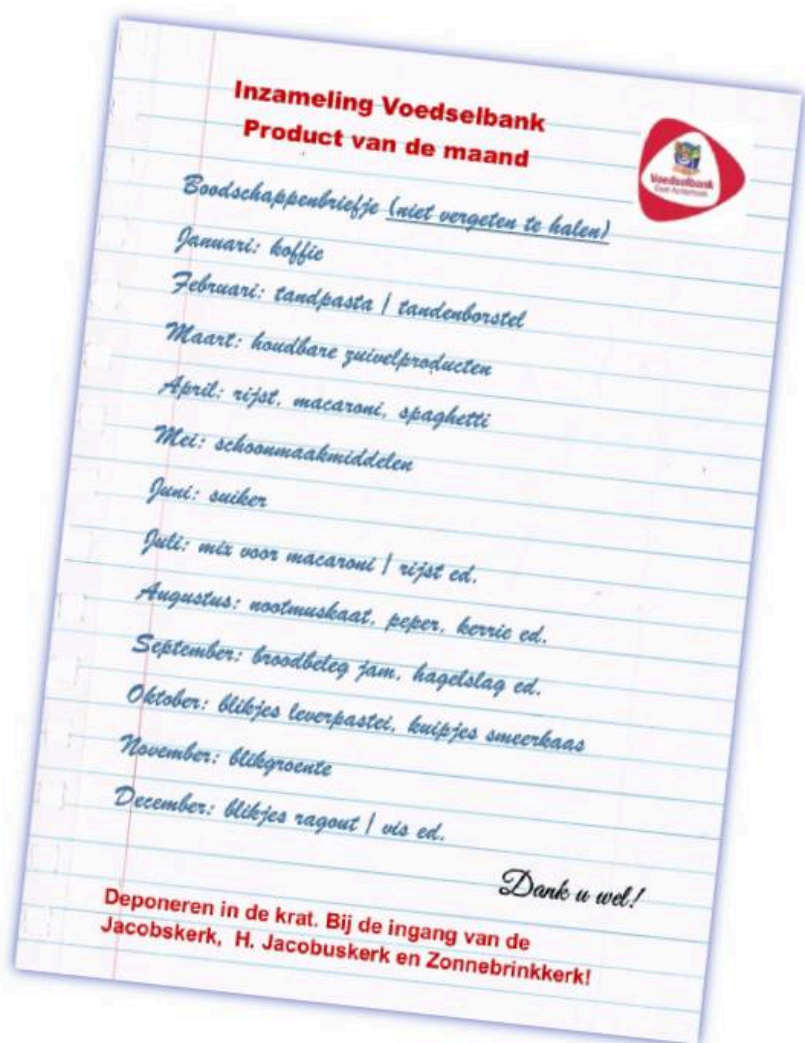 Inzameling Voedselbank
Product van de maand
Voedselbank
Oost Achterhoek
Boodschappenbriefje (niet vergeten te halen)
Januari: koffie
Februari: tandpasta | tandenborstel
Maart: houdbare zuivelproducten
April: rijst, macaroni, spaghetti
Mei: schoonmaakmiddelen
Juni: suiker
Juli: mix voor macaroni | rijst ed.
Augustus: nootmuskaat, peper, kerrie ed.
September: broodbeleg jam, hagelslag ed.
Oktober: blikjes leverpastei, kuipjes smeerkaas
November: blikgroente
December: blikjes ragout | vis ed.
Dank u wel!
Deponeren in de krat. Bij de ingang van de
Jacobskerk, H. Jacobuskerk en Zonnebrinkkerk!